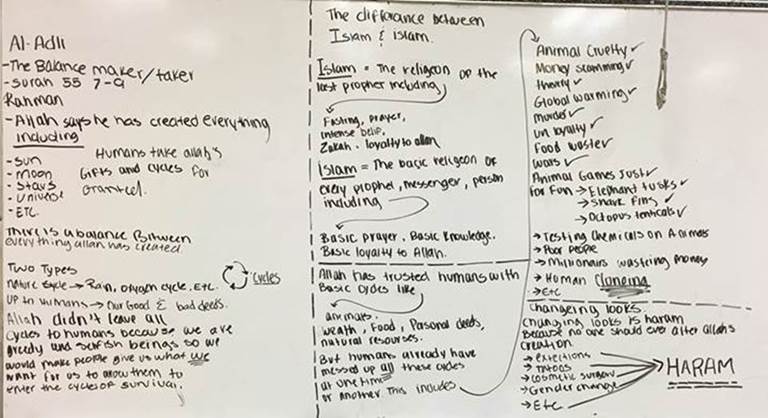 Al-Adli
-The Balance maker/taker
-Surah 55 7-9
Rahman
-Allah says he has created everything
including
-Sun
-moon
-Stars
-universe
-ETC.
Humans take allah's
Gifts and cycles for
Granted.
There is a balance Between
everything allah has created.
Two Types
nature cycle → Rain, oxygen cycle, Etc.
cycles
UP to Humans → Our Good & bad deeds.
Allah didn't leave all
cycles to humans because we are
greedy and selfish beings so we
would make people give us what we
want for us to allow them to
enter the cycle of survival.
The difference between
Islam & islam.
Islam = The religeon of the
last prophet including
Fasting, prayer,
intense
Zakah, loyalty to allah
Islam = The basic religeon of
every prophet, messenger, person
including
Basic prayer, Basic Knowledge.
Basic loyalty to Allah.
Allah has trusted humans with
Basic cycles like
animals,
wealth, Food, Personal deeds,
natural resourses.
But humans already have
messed up all these cycles
at one time
or another This includes
Animal Cruelty ✓
Money scamming ✓
theory ✓
Global warming ✓
murder ✓
un loyalty ✓
Food waster ✓
wars ✓
Animal Games Just ✓
for fun → Elephant tusks ✓
→ Shark fins ✓
→ Octopus tenticals ✓
→ Testing chemicals on Animals
→ Poor people
→ Millionairs wastring money
→ Human Cloneing
→ Etc
Changeing looks.
Changing looks is haram
Because no one should ever alter allah's
creation
→ extetions
→ Tattoos
→ cosmetic surgury
→ Gender change
→ Etc
HARAM